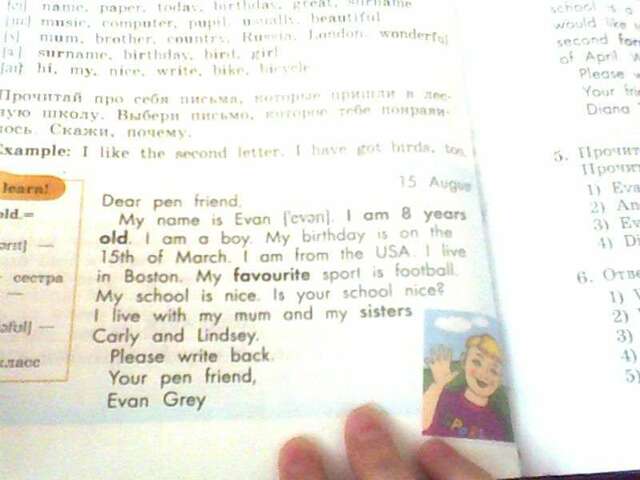 name, paper, today, birthday, great, surname
music, computer, pupil, usually, beautiful
mum, brother, country, Russia, London, wonderful
surname, birthday, bird, girl
[aɪ] hi, my, nice, write, bike, bicycle
Прочитай про себя письма, которые пришли в лес-
ную школу. Выбери письмо, которое тебе понрави-
лось. Скажи, почему.
Example: I like the second letter. I have got birds, too.
learn!
old.=
сестра
класс
15 Augus
Dear pen friend,
My name is Evan ['evən]. I am 8 years
old. I am a boy. My birthday is on the
15th of March. I am from the USA. I live
in Boston. My favourite sport is football.
My school is nice. Is your school nice?
I live with my mum and my sisters
Carly and Lindsey.
Please write back.
Your pen friend,
Evan Grey
school is a
would like
second
of April
Please w
Your frie
Diana
5. Прочит
Прочит
1) Eva
2) An
3) Ev
4) Di
6. Отве
1)
2)
3)
4)
5)